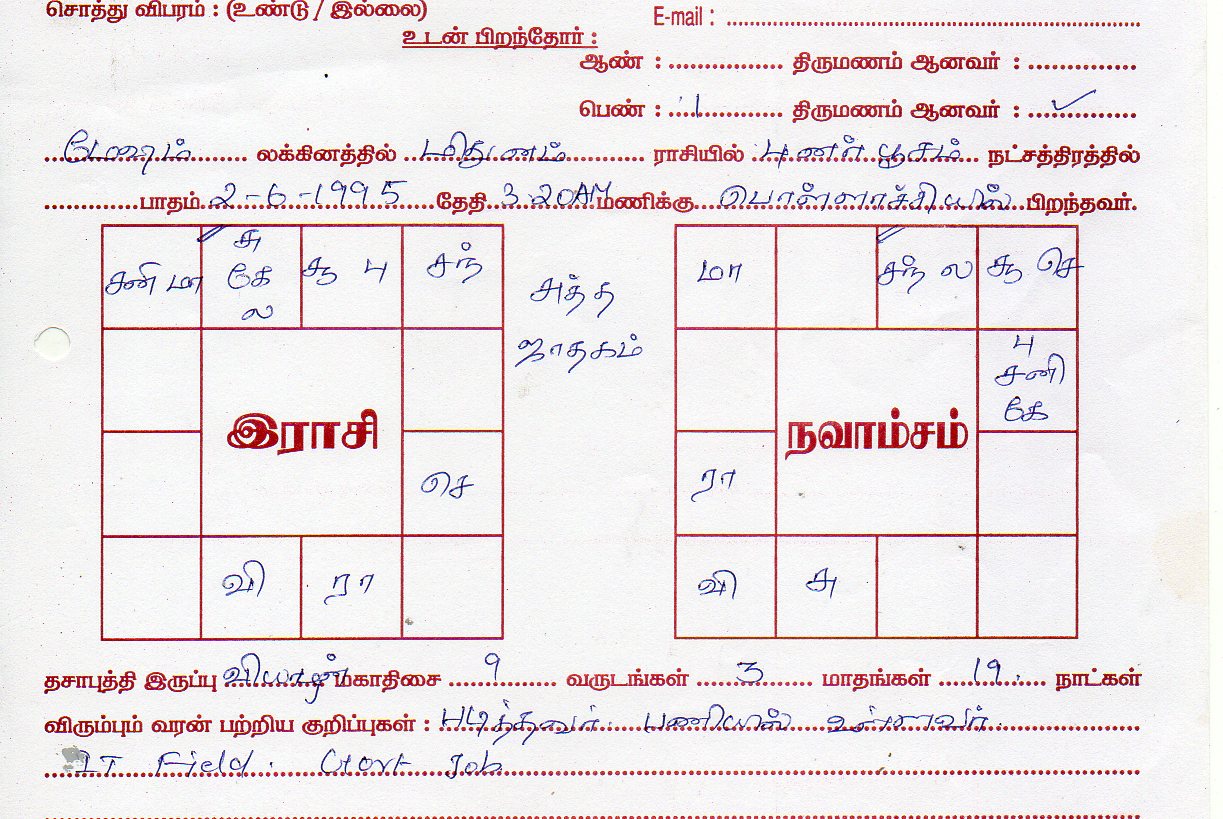 சொத்து விபரம் : (உண்டு / இல்லை)
E-mail : ........................
உடன் பிறந்தோர் :
ஆண் : ............... திருமணம் ஆனவர் : ...............
பெண் : ...1............ திருமணம் ஆனவர் : ...✓............
மேஷம் லக்கினத்தில் மிதுனம் ராசியில் புணர்பூசம் நட்சத்திரத்தில்
பாதம் 2-6-1995 தேதி 3.20AM மணிக்கு பொள்ளாச்சியில் பிறந்தவர்.
சனி மா
சு கே ல
சூ பு
சந்
செ
வி
ரா
இராசி
அத்த ஜாதகம்
மா
சந் ல
சூ செ
பு சனி கே
ரா
வி
சு
நவாம்சம்
தசாபுத்தி இருப்பு வியாழன் மகாதிசை 9 வருடங்கள் 3 மாதங்கள் 19 நாட்கள்
விரும்பும் வரன் பற்றிய குறிப்புகள் : படித்தவர் பணியில் உள்ளவர்
IT Field. Govt Job